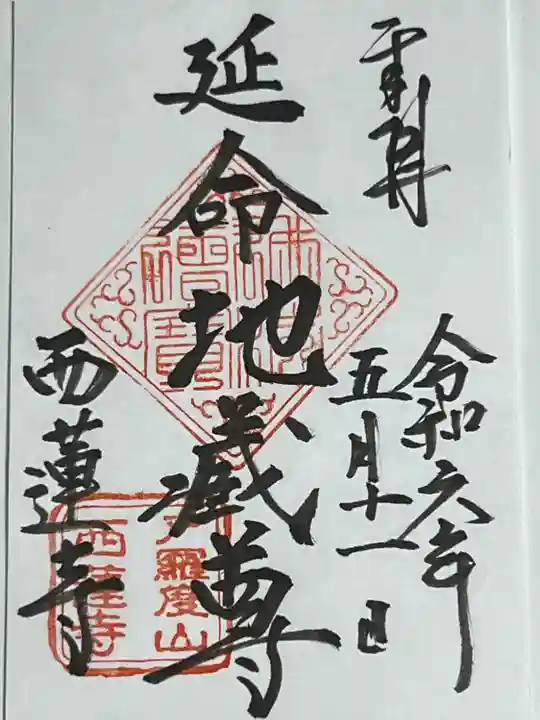 奉拝
令和六年
五月十一日
延命地蔵尊
西蓮寺
羅度山
西蓮寺